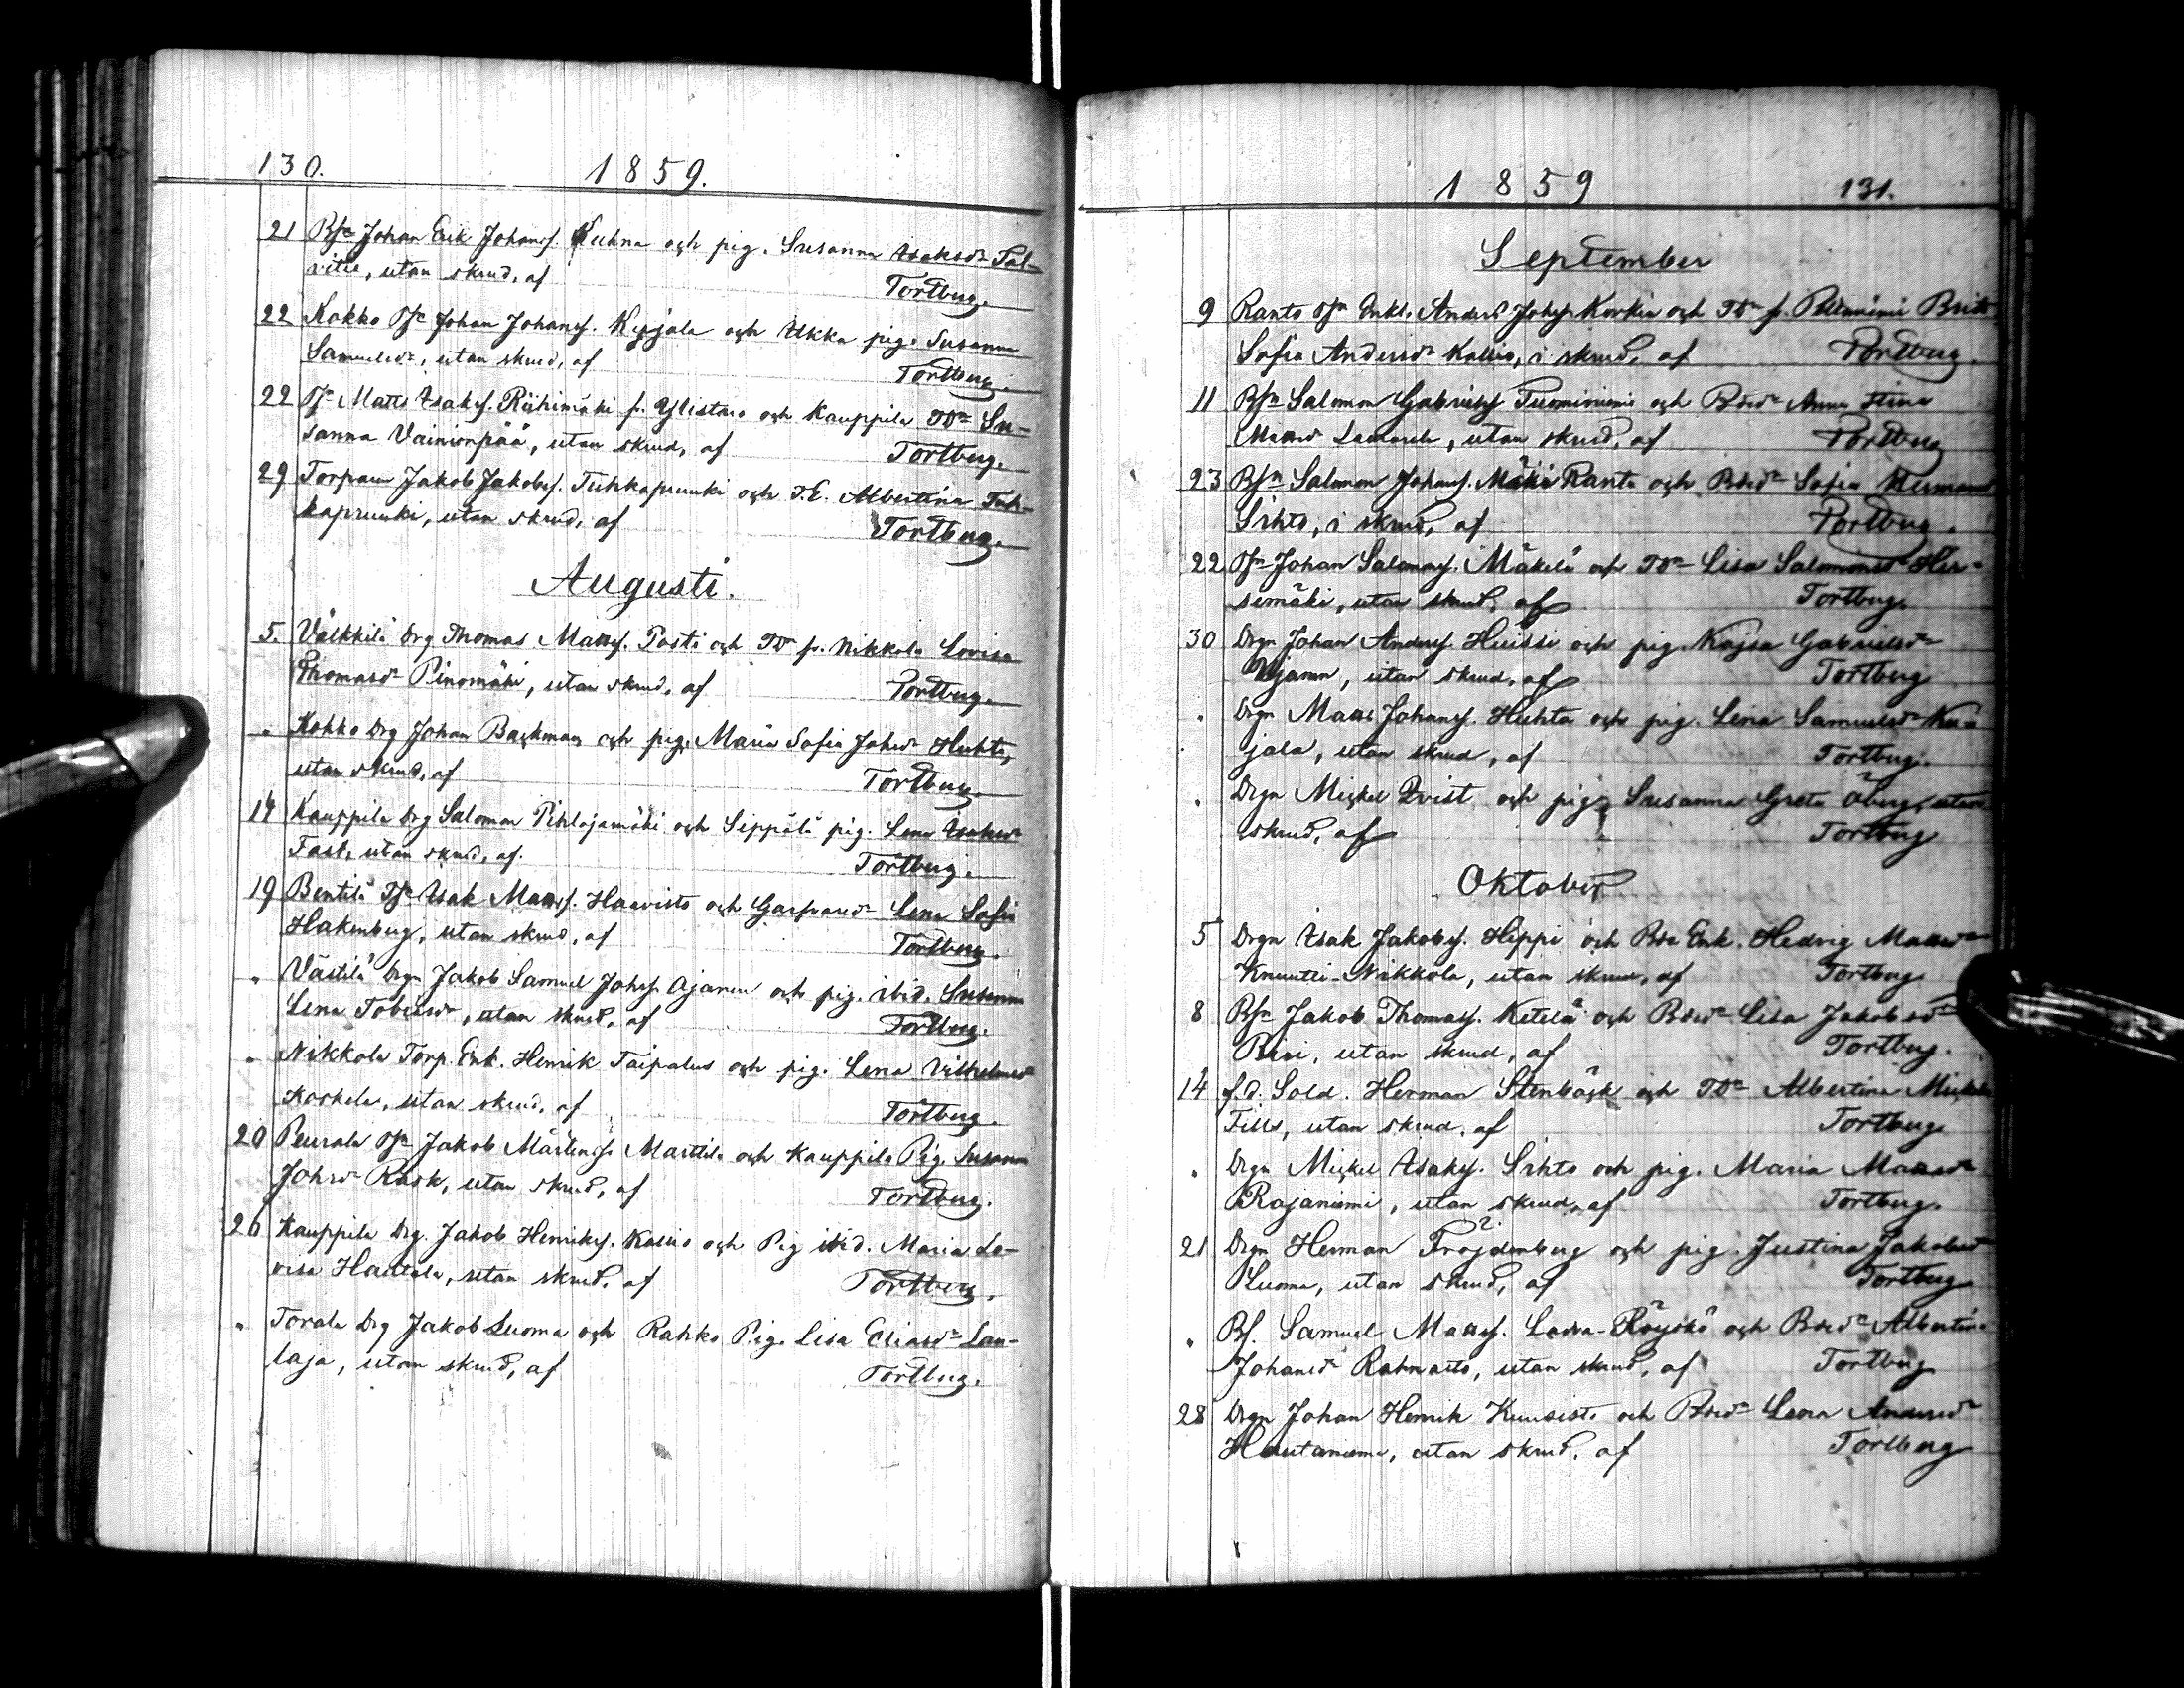 130. 1859.
21 Bs:n Johan Erik Johans. Kuhna och pig. Susanna Isaksdr Tal-
vitie, utan skrud, af Tortberg.
22 Kokko Ts:n Johan Johans. Kujala och Ukka pig. Susanna
Samuelsdr, utan skrud, af Tortberg.
22 Ts:n Matts Isaks. Riihimäki fr. Ylistaro och Kauppila TD:r Su-
sanna Vainionpää, utan skrud, af Tortberg.
29 Torparen Jakob Jakobs. Tuhkapruuki och T.E. Albertina Tuh-
kapruuki, utan skrud, af Tortberg.
Augusti.
5. Välkkilä Drg Thomas Matts. Posti och TD fr. Nikkola Lovisa
Thomasdr Pinomäki, utan skrud, af Tortberg.
" Kokko Drg Johan Backman och pig. Maria Sofia Johsdr Huhta,
utan skrud, af Tortberg.
14 Kauppila Drg Salomon Pihlajamäki och Seppälä pig. Lena Isaksdr
Fast, utan skrud, af Tortberg.
19 Benttilä Ts:n Isak Matts. Haavisto och Lena Sofia
Hakenberg, utan skrud, af Tortberg.
" Västilä Drgn Jakob Samuel Johs. Ojanen och pig. ibid. Susanna
Lena Tobiasdr, utan skrud, af Tortberg.
" Nikkola Torp. Enk. Henrik Taipalus och pig. Lena Vilhelmsdr
Koskela, utan skrud, af Tortberg.
20 Peurala Ts:n Jakob Mårtens. Marttila och Kauppila Pig. Susanna
Johsdr Rask, utan skrud, af Tortberg.
26 Kauppila Drg. Jakob Henriks. Kallio och Pig ibid. Maria Lo-
visa Hautala, utan skrud, af Tortberg.
" Torala Drg Jakob Luoma och Rahko Pig. Lisa Eliasdr Lau-
laja, utan skrud, af Tortberg.
1859 131.
September
9 Ranto Ts:n Enkl. Anders Johs. Korkia och TD:r fr. Brita
Sofia Andersdr Kallio, i skrud, af Tortberg.
11 Bs:n Salomon Gabriels. Tuominiemi och Bdr Anna Stina
Mattsdr, utan skrud, af Tortberg
23 Bs:n Salomon Johans. Mäki Ranta och Bdr Sofia Hermansd
Sihto, i skrud, af Tortberg.
22 Ts:n Johan Salomons. Mäkelä och TD:r Lisa Salomonsdr Hir-
simäki, utan skrud, af Tortberg.
30 Drgn Johan Anders. Huissi och pig. Kajsa Gabrielsdr
Ojanen, utan skrud, af Tortberg
" Drgn Matts Johans. Huhta och pig. Lena Samuelsdr Kuu-
jala, utan skrud, af Tortberg.
" Drgn Mickel Qvist och pig. Susanna Greta Öberg, utan
skrud, af Tortberg
Oktober
5 Drgn Isak Jakobs. Heppi och Bde Enk. Hedvig Mattsdr
Knuutti-Nikkola, utan skrud, af Tortberg
8 Bs:n Jakob Thomass. Ketelä och Bdr Lisa Jakobsdr
Pisi, utan skrud, af Tortberg.
14 f.d. Sold. Herman Stenbäck och TD:r Albertina Mickelsdr
Fills, utan skrud, af Tortberg
" Drgn Mickel Isaks. Sihto och pig. Maria Mattsdr
Rajaniemi, utan skrud, af Tortberg.
21 Drgn Herman Fröjdenberg och pig. Justina Jakobsdr
Luoma, utan skrud, af Tortberg
" Bs. Samuel Matts. Latva-Röyskö och Bdr Albertina
Johansdr Rahnasto, utan skrud, af Tortberg
28 Drgn Johan Henrik Kuusisto och Bdr Leena Andersdr
Hautaniemi, utan skrud, af Tortberg